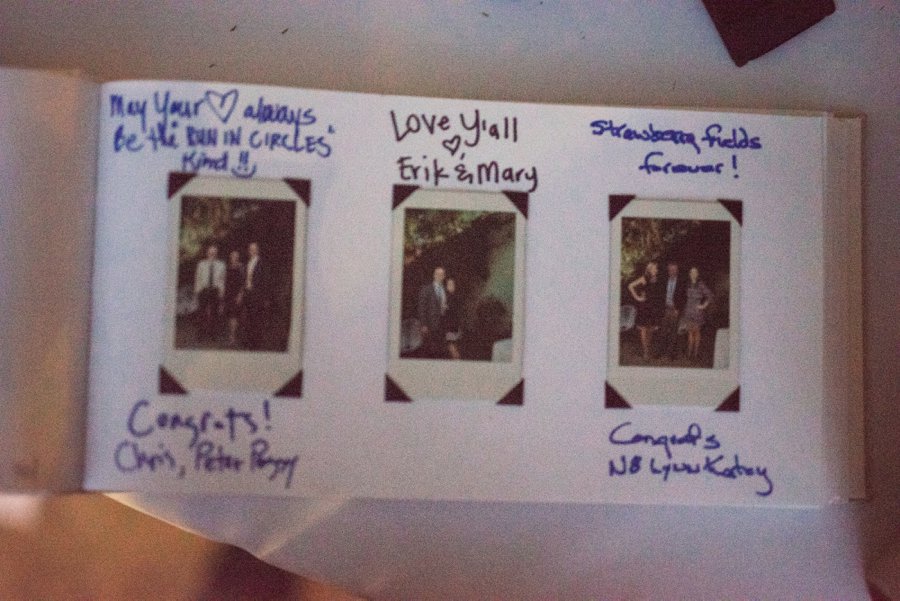 May Your ♡ always
Be the "RUN IN CIRCLES"
Kind!!
Congrats!
Chris, Peter Peggy
Love Y'all
♡
Erik & Mary
Strawberry fields
forever!
Congrats
Lynn